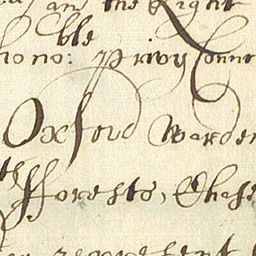 and the Right
hono: ble Privy Coun
Oxford Warden
th fforests, Chase
represent